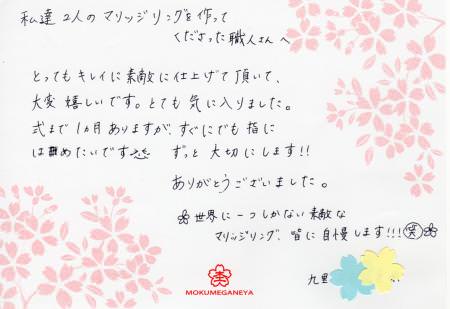 私達 2人の マリッジリングを 作って
くださった 職人さん へ
とっても キレイに 素敵に 仕上げて 頂いて、
大変 嬉しいです。とても 気に入りました。
式まで 1ヵ月 ありますが、すぐにでも 指に
はめたいです ずっと 大切にします!!
ありがとうございました。
世界に 一つしかない 素敵な
マリッジリング、皆に 自慢します!!! 笑
九里
MOKUMEGANEYA